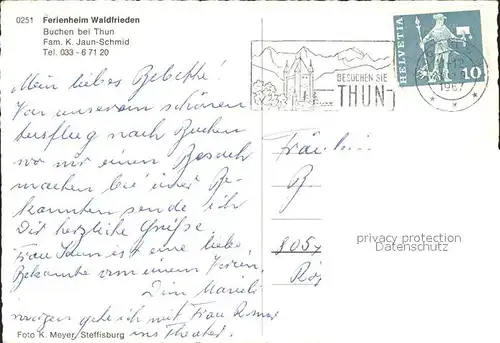 0251 Ferienheim Waldfrieden
Buchen bei Thun
Fam. K. Jaun-Schmid
Tel. 033 - 6 71 20
HELVETIA
10
BESUCHEN SIE
THUN
1967
Mein liebes Babettli!
Von unserem schönen
Ausflug nach Buchen
wo wir einen Besuch
machen bei einer Be-
kannten sende ich
Dir herzliche Grüße.
Frau Jaun ist eine liebe
Bekannte von einem Verein.
Dini
morgen gehe ich mit Frau
ins Theater.
Fräulein
B
805
privacy protection
Datenschutz
Foto K. Meyer, Steffisburg